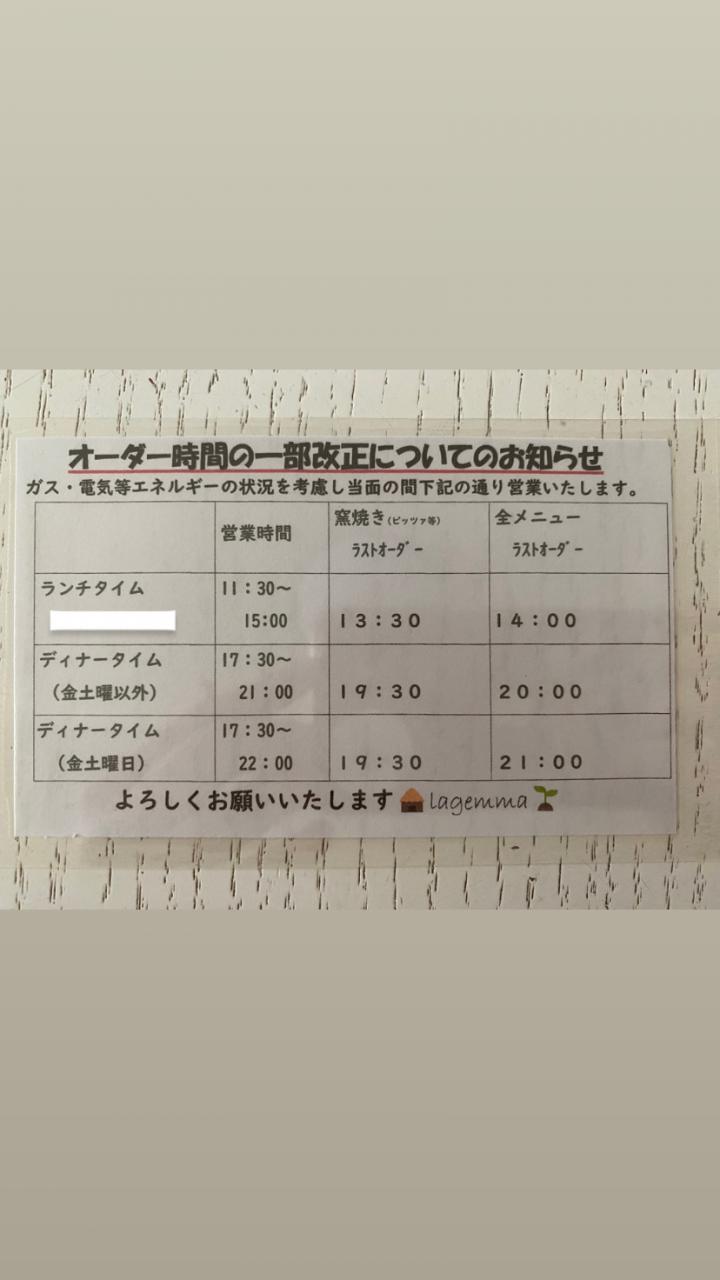 オーダー時間の一部改正についてのお知らせ
ガス・電気等エネルギーの状況を考慮し当面の間下記の通り営業いたします。
営業時間 窯焼き(ピッツァ等) ラストオーダー 全メニュー ラストオーダー
ランチタイム 11：30～15:00 13：30 14：00
ディナータイム（金土曜以外） 17：30～21：00 19：30 20：00
ディナータイム（金土曜日） 17：30～22：00 19：30 21：00
よろしくお願いいたします lagemma